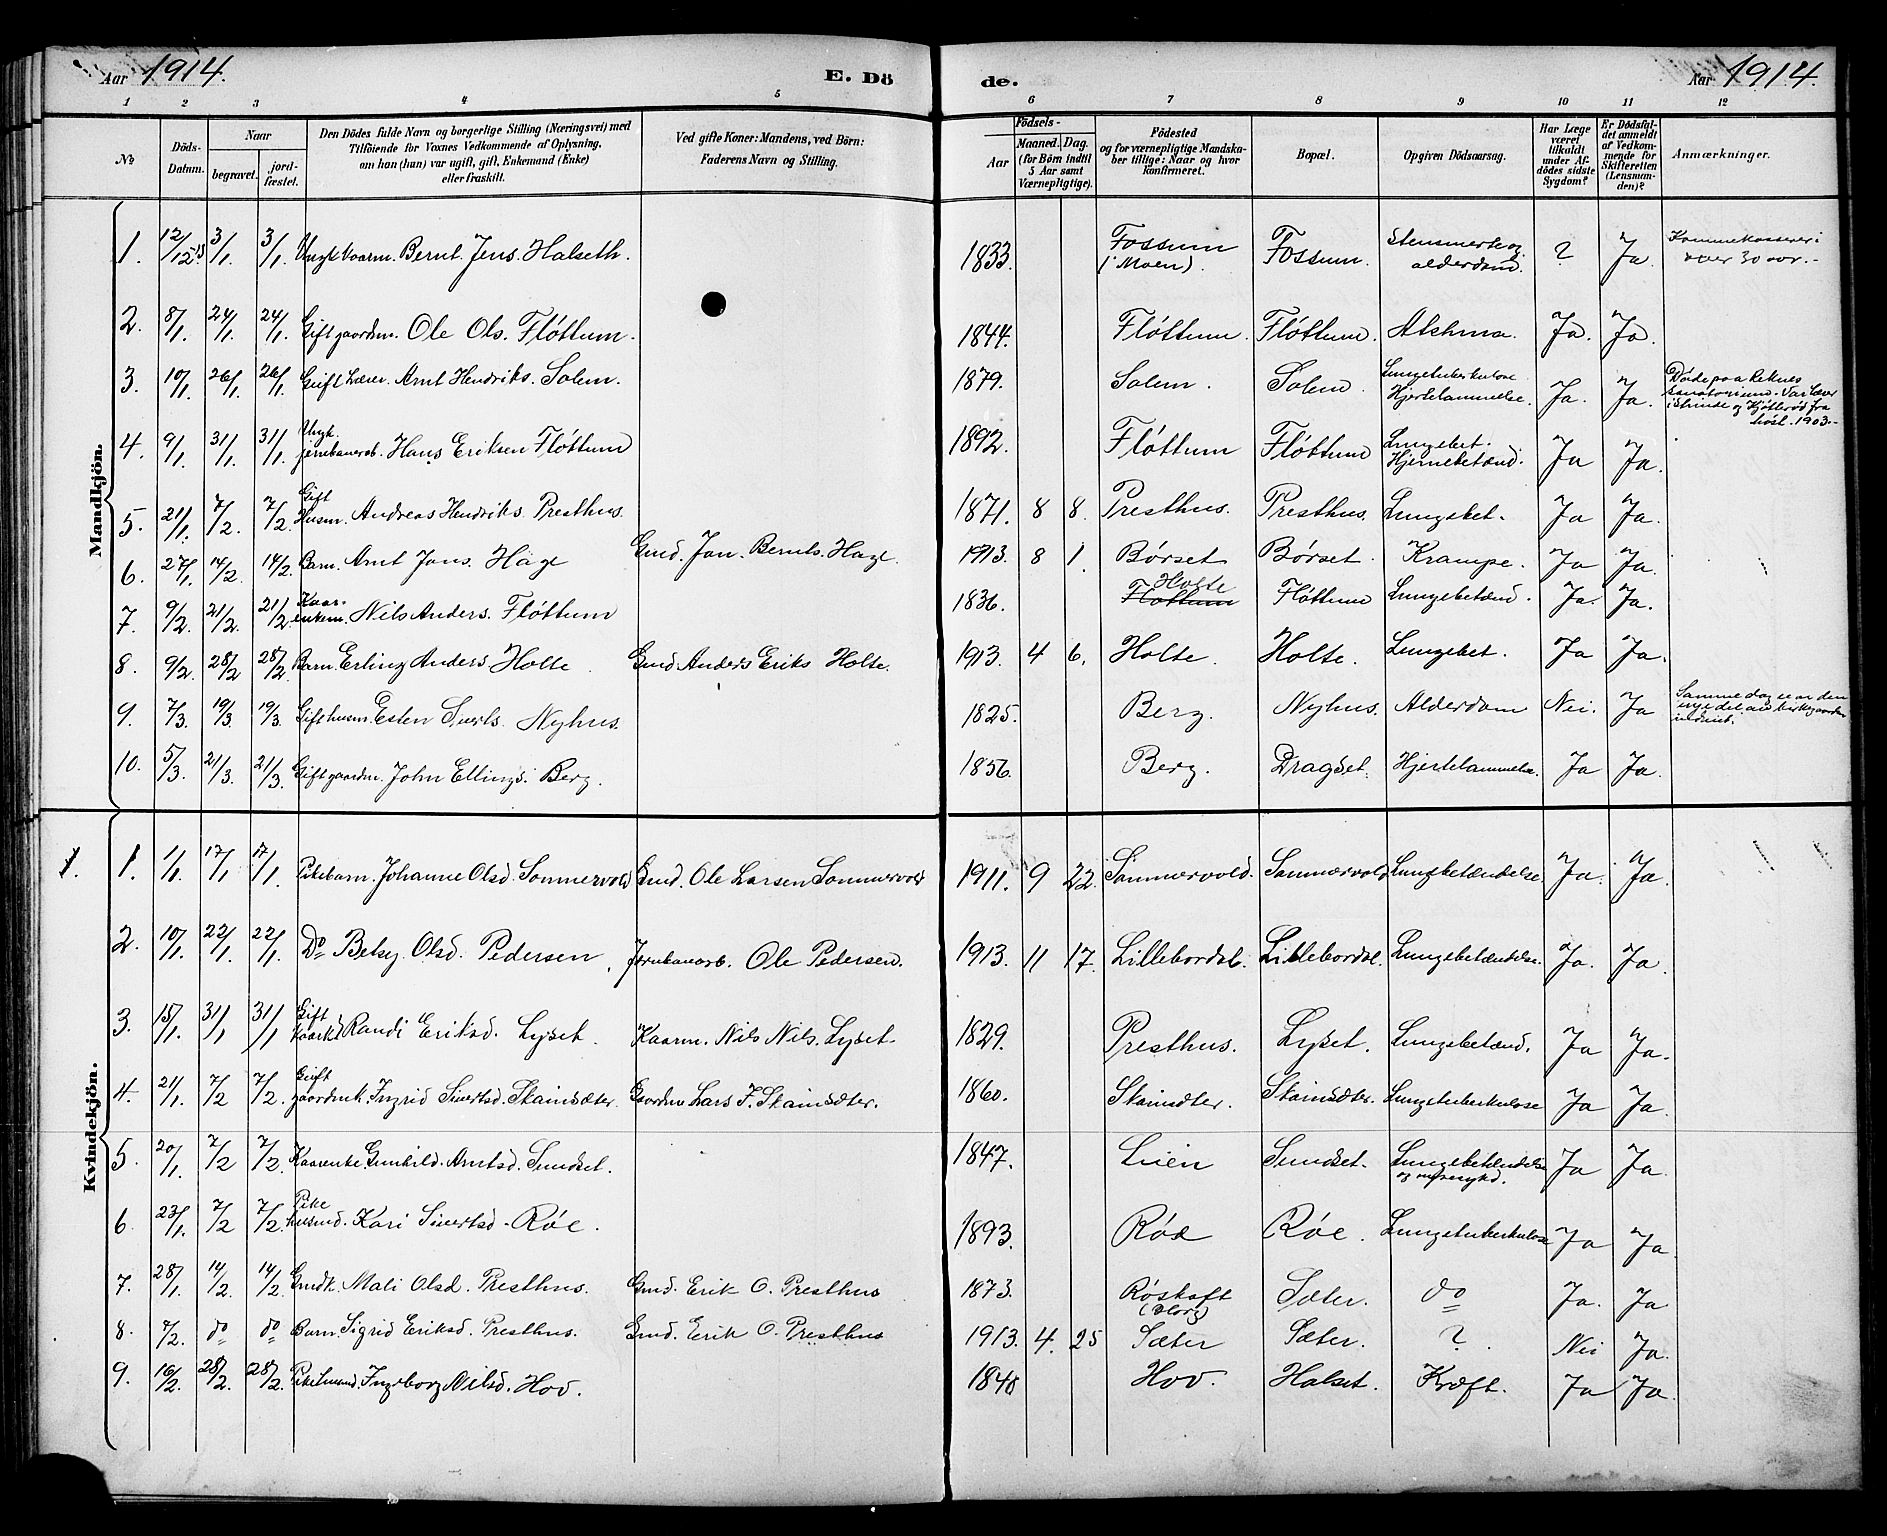 Aar 1914. E. Dö de. Aar 1914.
1 2 3 4 5 6 7 8 9 10 11 12
No
Döds-Datum.
Naar
begravet.
jord-fæstet.
Den Dödes fulde Navn og borgerlige Stilling (Næringsvei) med
Tilföiende for Voxnes Vedkommende af Oplysning,
om han (hun) var ugift, gift, Enkemand (Enke)
eller fraskilt.
Ved gifte Koner: Mandens, ved Börn:
Faderens Navn og Stilling.
Födsels-
Aar
Maaned. Dag.
(for Börn indtil
5 Aar samt
Værnepligtige).
Födested
og for værnepligtige Mandska-
ber tillige: Naar og hvor
konfirmeret.
Bopæl.
Opgiven Dödsaarsag.
Har Læge
været
tilkaldt
under Af-
dödes sidste
Sygdom?
Er Dödsfal-
det anmeldt
af Vedkom-
mende for
Skifteretten
(Lensman-
den)?
Anmærkninger.
Mandkjön.
1. 12/12 13 3/1. 3/1. Bernt Jens. Halseth. 1833. Fossum (Moen). Fossum. Stensmerte og alderdom. ? Ja. over 30 aar.
2. 8/1. 24/1. 24/1. Gift gaardm. Ole Ols. Fløttum. 1844. Fløttum. Fløttum. Ja. Ja.
3. 10/1. 26/1. 26/1. Gift Lærer. Arnt Hendriks. Solem. 1879. Solem. Solem. Lungetuberkulose Hjertelammelse. Ja. Ja. Døde paa Reknes Sanatorium. Var Lærer i Strinde og 1903.
4. 9/1. 31/1. 31/1. Ungk. jernbanearb. Hans Eriksen Fløttum 1892. Fløttum Fløttum Lungebet. Hjernebetænd. Ja Ja.
5. 21/1. 7/2. 7/2. Gift Husm. Andreas Hendriks. Presthus. 1871. 8 8. Presthus. Presthus. Lungebet. Ja Ja.
6. 27/1. 14/2. 14/2. Barn. Arnt Jans. Hage Gmd. Jan. Bernts. Hage. 1913. 8 1. Børset Børset. Krampe. Ja Ja.
7. 9/2. 21/2. 21/2. Kaar-enkem. Nils Anders. Fløttum 1836. Fløttum Holte Fløttum Lungebetænd. Ja. Ja.
8. 9/2. 28/2. 28/2. Barn. Erling Anders. Holte. Gmd Anders Eriks Holte. 1913. 4 6. Holte. Holte. Lungebet. Ja Ja.
9. 7/3. 19/3 19/3. Gift husm. Esten Siverts. Nyhus. 1825. Berg. Nyhus. Alderdom Nei. Ja Samme dag den nye del av kirkegaarden indviet.
10. 5/3. 21/3. 21/3. Gift gaardm. John Ellings. Berg. 1856. Berg. Dragset. Hjertelammelse. Ja Ja.
Kvindekjön.
1. 1. 1/1. 17/1 17/1. Pikebarn. Johanne Olsd. Sommervold Gmd. Ole Larsen Sommervold 1911. 9 22. Sommervold. Sommervold Lungebetændelse Ja. Ja.
2. 10/1. 22/1. 22/1. Do Betsy Olsd. Pedersen. Jernbanearb. Ole Pedersen. 1913. 11 17. Lungebetændelse. Ja. Ja.
3. 15/1. 31/1 31/1 Gift Randi Eriksd. Lyset. Kaarm. Nils Nils. Lyset. 1829. Presthus. Lyset. Lungebetænd. Ja Ja.
4. 21/1. 7/2 7/2. Gift gaardmk. Ingrid Sivertsd. Skainsæter. Gaardm Lars J. Skainsæter. 1860. Skainsæter. Skainsæter. Lungetuberkulose Ja Ja.
5. 20/1. 7/2 7/2. Kaarenke. Gunhild. Arntsd. Sundset. 1847. Lien Sundset. Lungebetændelse Ja Ja.
6. 23/1. 7/2 7/2. Pike Kari Sivertsd. Røe. 1893. Røe Røe. Lungetuberkulose Ja Ja.
7. 28/1. 14/2. 14/2. Gmdk. Mali Olsd. Presthus. Gmd. Erik O. Presthus 1873. Røskaft (Horg) Sæter. do Ja. Ja
8. 7/2. do do Barn. Sigrid Eriksd. Presthus. Gmd. Erik O. Presthus 1913. 4. 25 Sæter Sæter. ? Nei Ja.
9. 16/2. 28/2. 28/2. Ingeborg Nilsd. Hov. 1840 Hov. Halset. Kræft. Ja Ja.